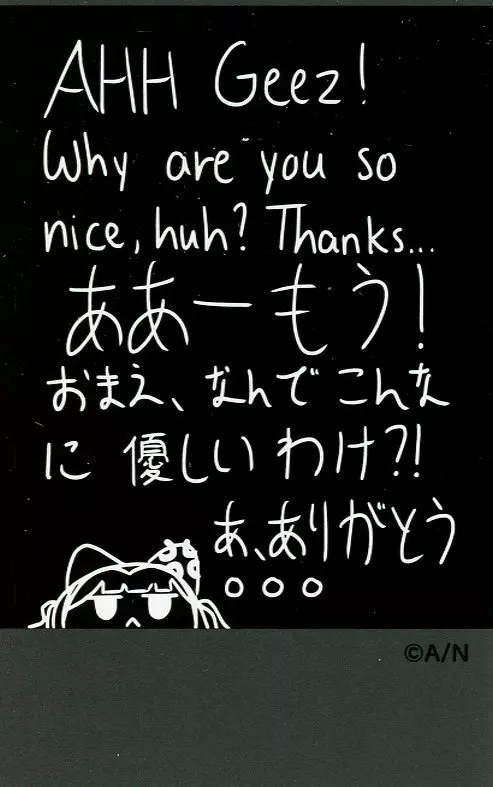 AHH Geez!
Why are you so
nice, huh? Thanks...
ああーもう!
おまえ、なんでこんな
に優しいわけ?!
あ、ありがとう
。。。
©A/N